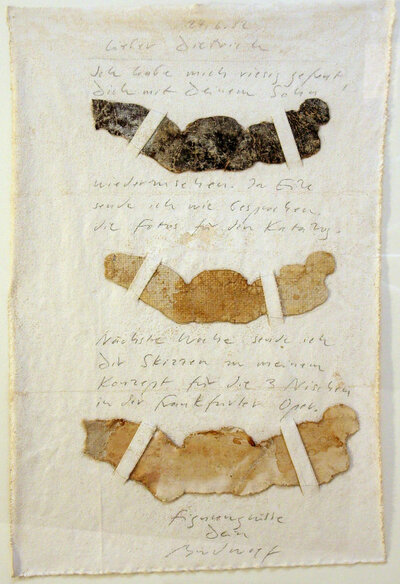 24.6.82
Lieber Dietrich,
Ich habe mich riesig gefreut
Dich mit Deinem Sohn
wiederzusehen. In Eile
sende ich wie besprochen
die Fotos für den Katalog.
Nächste Woche sende ich
Dir Skizzen zu meinem
Konzept für die 3 Nischen
in der Frankfurter Oper.
Dein